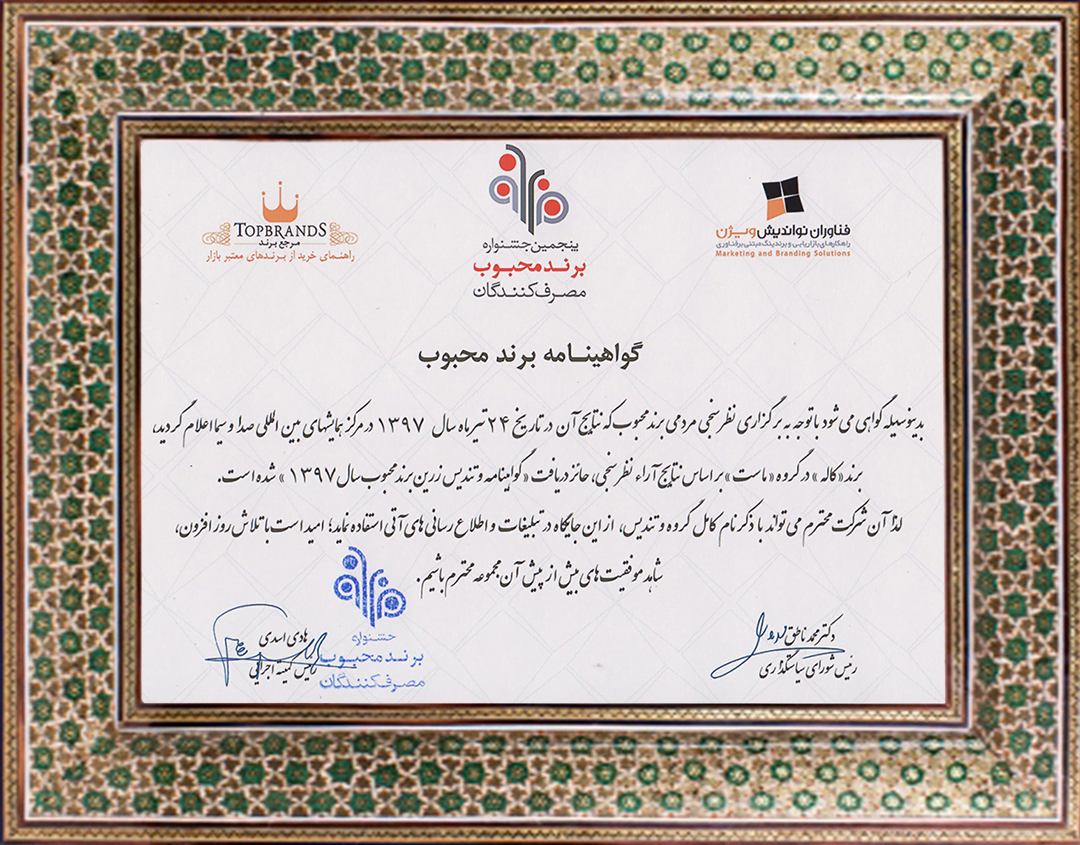 پنجمین جشنواره
برند محبوب
مصرف‌کنندگان
فناوران نواندیش ویژن
راهکارهای بازاریابی و برندینگ مبتنی بر فناوری
Marketing and Branding Solutions
TOPBRANDS
مرجع برند
راهنمای خرید از برندهای معتبر بازار
گواهینامه برند محبوب
بدینوسیله گواهی می شود با توجه به برگزاری نظر سنجی مردمی برند محبوب که نتایج آن در تاریخ ۲۴ تیر ماه سال ۱۳۹۷ در مرکز همایشهای بین المللی صدا و سیما اعلام گردید،
برند «کاله» در گروه «ماست» بر اساس نتایج آراء نظر سنجی، حائز دریافت «گواهینامه و تندیس زرین برند محبوب سال ۱۳۹۷» شده است.
لذا آن شرکت محترم می تواند با ذکر نام کامل گروه و تندیس، از این جایگاه در تبلیغات و اطلاع رسانی های آتی استفاده نماید؛ امید است با تلاش روز افزون،
شاهد موفقیت های بیش از پیش آن مجموعه محترم باشیم.
دکتر محمد ناطق
رئیس شورای سیاستگذاری
هادی اسدی
رئیس کمیته اجرایی
جشنواره
برند محبوب
مصرف‌کنندگان